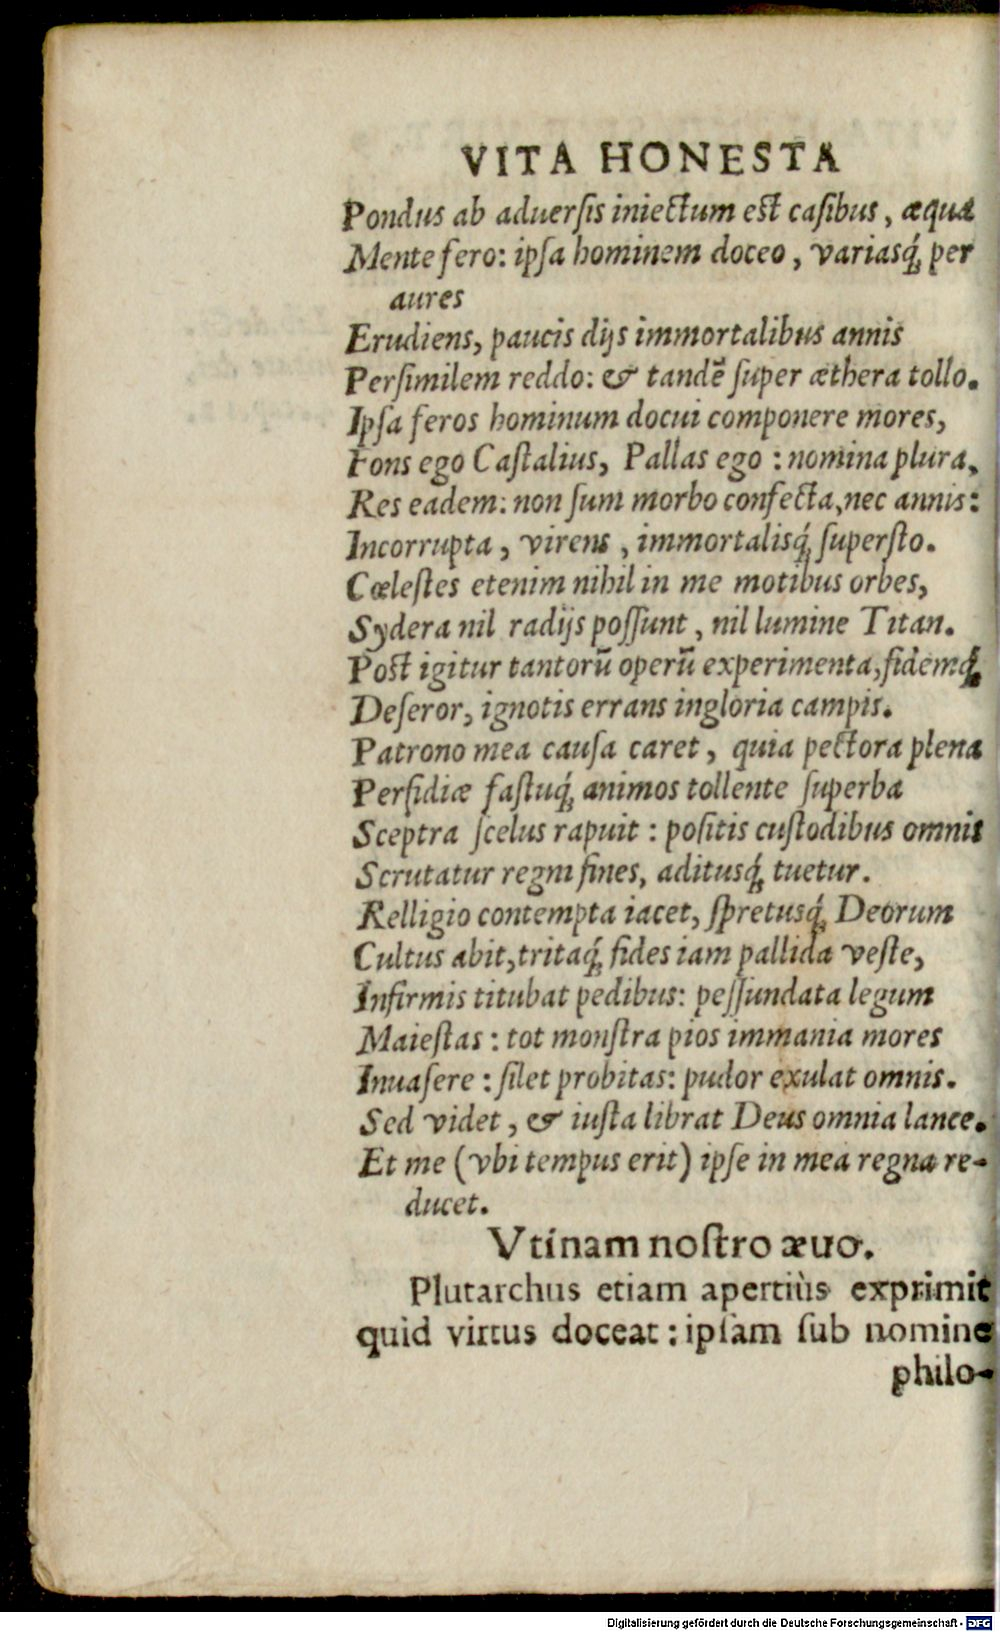 VITA HONESTA
Pondus ab aduerſis iniectum eſt caſibus, æqua
Mente fero: ipſa hominem doceo, variasq́; per
aures
Erudiens, paucis dijs immortalibus annis
Perſimilem reddo: & tandẽ ſuper æthera tollo.
Ipſa feros hominum docui componere mores,
Fons ego Caſtalius, Pallas ego: nomina plura,
Res eadem: non ſum morbo confecta, nec annis:
Incorrupta, virens, immortalisq́; ſuperſto.
Cœleſtes etenim nihil in me motibus orbes,
Sydera nil radijs poſſunt, nil lumine Titan.
Poſt igitur tantorũ operũ experimenta, fidemq́;
Deſeror, ignotis errans ingloria campis.
Patrono mea cauſa caret, quia pectora plena
Perfidiæ faſtuq́; animos tollente ſuperba
Sceptra ſcelus rapuit: poſitis cuſtodibus omnis
Scrutatur regni fines, aditusq́; tuetur.
Relligio contempta iacet, ſpretusq́; Deorum
Cultus abit, tritaq́; fides iam pallida veſte,
Infirmis titubat pedibus: peſſundata legum
Maieſtas: tot monſtra pios immania mores
Inuaſere: ſilet probitas: pudor exulat omnis.
Sed videt, & iuſta librat Deus omnia lance.
Et me (vbi tempus erit) ipſe in mea regna re-
ducet.
Vtinam noſtro æuo.
Plutarchus etiam apertiùs exprimit
quid virtus doceat: ipſam ſub nomine
philo-
Digitalisierung gefördert durch die Deutsche Forschungsgemeinschaft - DFG